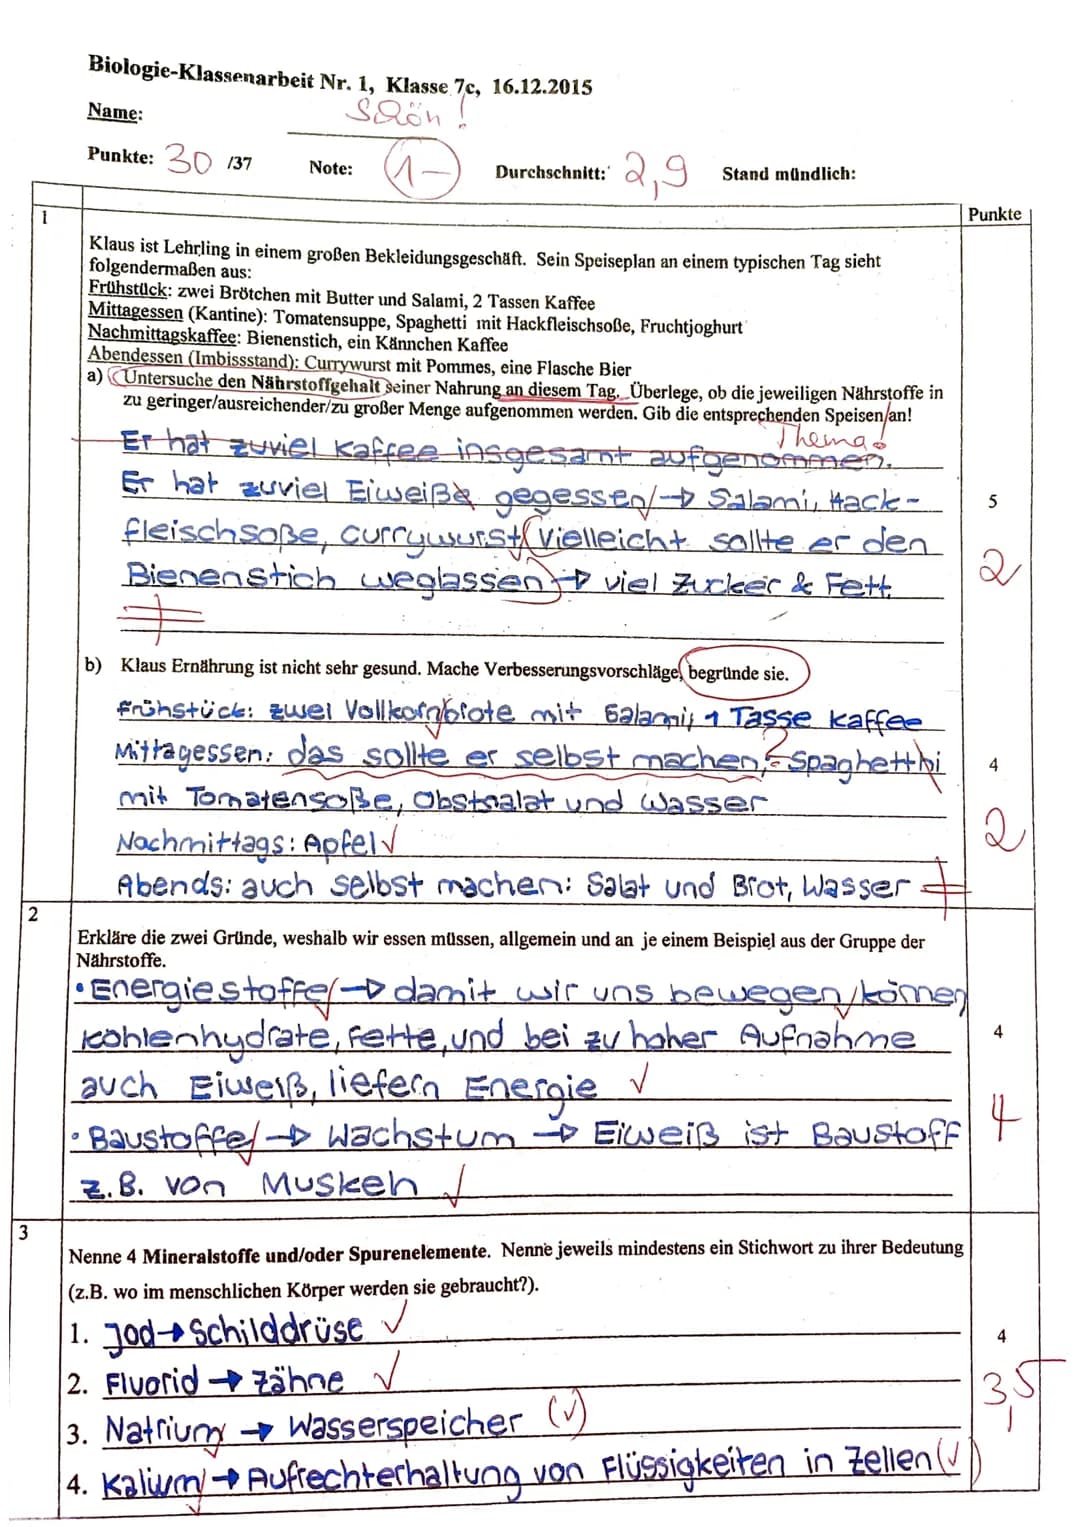 Biologie-Klassenarbeit Nr. 1, Klasse 7c, 16.12.2015
Name:
Schön!
Punkte: 30 /37 Note: 1- Durchschnitt: 2,9 Stand mündlich:
Punkte
1
Klaus ist Lehrling in einem großen Bekleidungsgeschäft. Sein Speiseplan an einem typischen Tag sieht
folgendermaßen aus:
Frühstück: zwei Brötchen mit Butter und Salami, 2 Tassen Kaffee
Mittagessen (Kantine): Tomatensuppe, Spaghetti mit Hackfleischsoße, Fruchtjoghurt
Nachmittagskaffee: Bienenstich, ein Kännchen Kaffee
Abendessen (Imbissstand): Currywurst mit Pommes, eine Flasche Bier
a) Untersuche den Nährstoffgehalt seiner Nahrung an diesem Tag. Überlege, ob die jeweiligen Nährstoffe in
zu geringer/ausreichender/zu großer Menge aufgenommen werden. Gib die entsprechenden Speisen an!
Thema!
Er hat zuviel Kaffee insgesamt aufgenommen.
Er hat zuviel Eiweiße gegessen → Salami, Hack-
fleischsoße, Currywurst vielleicht sollte er den
Bienenstich weglassen → viel Zucker & Fett
5
2
b) Klaus Ernährung ist nicht sehr gesund. Mache Verbesserungsvorschläge, begründe sie.
Frühstück: zwei Vollkornbrote mit Salami, 1 Tasse Kaffee
Mittagessen: das sollte er selbst machen, ? Spaghetthi
mit Tomatensoße, Obstsalat und Wasser
Nachmittags: Apfel ✓
Abends: auch selbst machen: Salat und Brot, Wasser
4
2
2
Erkläre die zwei Gründe, weshalb wir essen müssen, allgemein und an je einem Beispiel aus der Gruppe der
Nährstoffe.
• Energiestoffe ✓ → damit wir uns bewegen ✓ können
Kohlenhydrate, Fette, und bei zu hoher Aufnahme
auch Eiweiß, liefern Energie ✓
• Baustoffe ✓ → Wachstum → Eiweiß ist Baustoff
z.B. von Muskeln ✓
4
4
3
Nenne 4 Mineralstoffe und/oder Spurenelemente. Nenne jeweils mindestens ein Stichwort zu ihrer Bedeutung
(z.B. wo im menschlichen Körper werden sie gebraucht?).
1. Jod → Schilddrüse ✓
2. Fluorid → Zähne ✓
3. Natrium ✓ → Wasserspeicher (✓)
4. Kalium ✓ → Aufrechterhaltung von Flüssigkeiten in Zellen (✓)
4
3,5